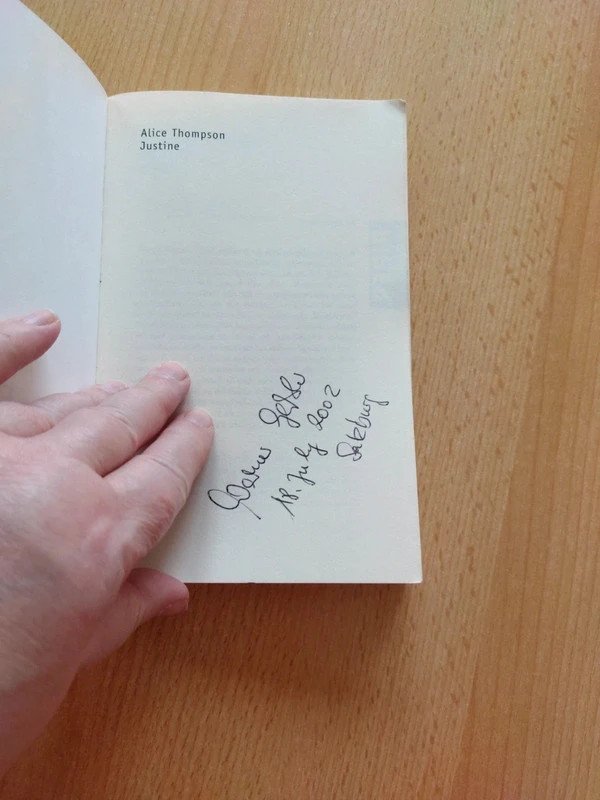 Alice Thompson
Justine
18. July 2002
Salzburg